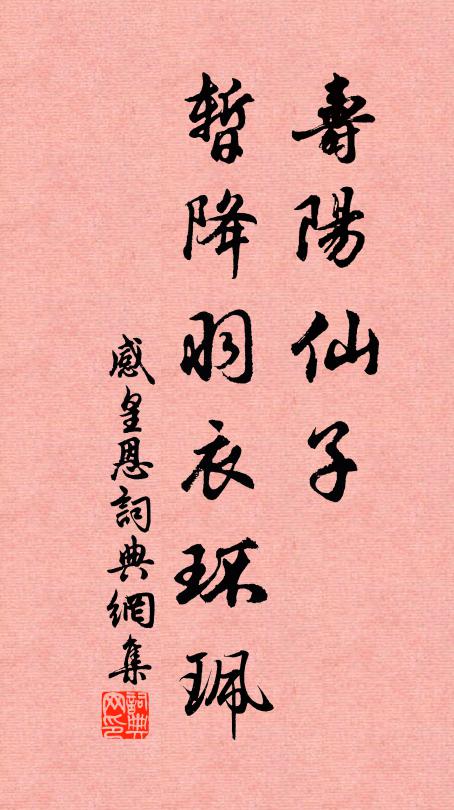 壽陽仙子
暫降羽衣環珮
感皇恩詞典網集
詞典网印